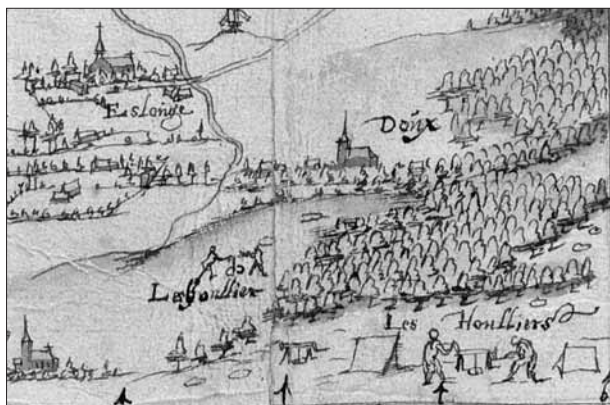 Eslouge
Doŭr
Les houllier
Les Houlliers